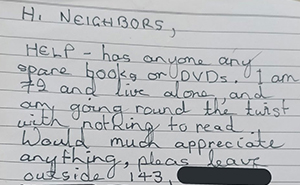 Hi NEIGHBORS,
HELP - has anyone any
spare books or DVDs. I am
72 and live alone, and
am going round the twist
with nothing to read.
Would much appreciate
anything, pleas leave
outside 143,